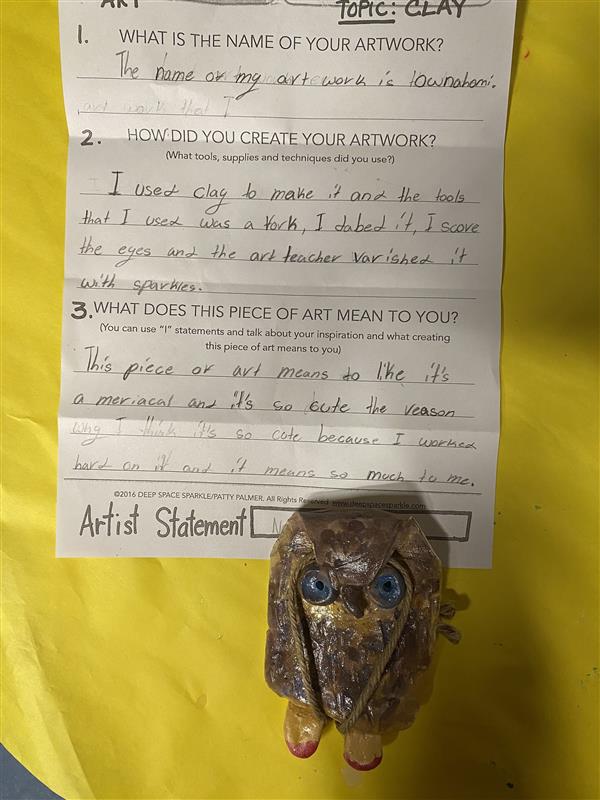 ART
TOPIC: CLAY
1. WHAT IS THE NAME OF YOUR ARTWORK?
The name or my art work is townahomi.
art work that I
2. HOW DID YOU CREATE YOUR ARTWORK?
(What tools, supplies and techniques did you use?)
I used clay to make it and the tools
that I used was a fork, I dabed it, I score
the eyes and the art teacher varished it
with sparkles.
3. WHAT DOES THIS PIECE OF ART MEAN TO YOU?
(You can use "I" statements and talk about your inspiration and what creating
this piece of art means to you)
This piece or art means to like it's
a meriacal and it's so cute the reason
why I think it's so cute because I worked
hard on it and it means so much to me.
©2016 DEEP SPACE SPARKLE/PATTY PALMER. All Rights Reserved www.deepspacesparkle.com
Artist Statement